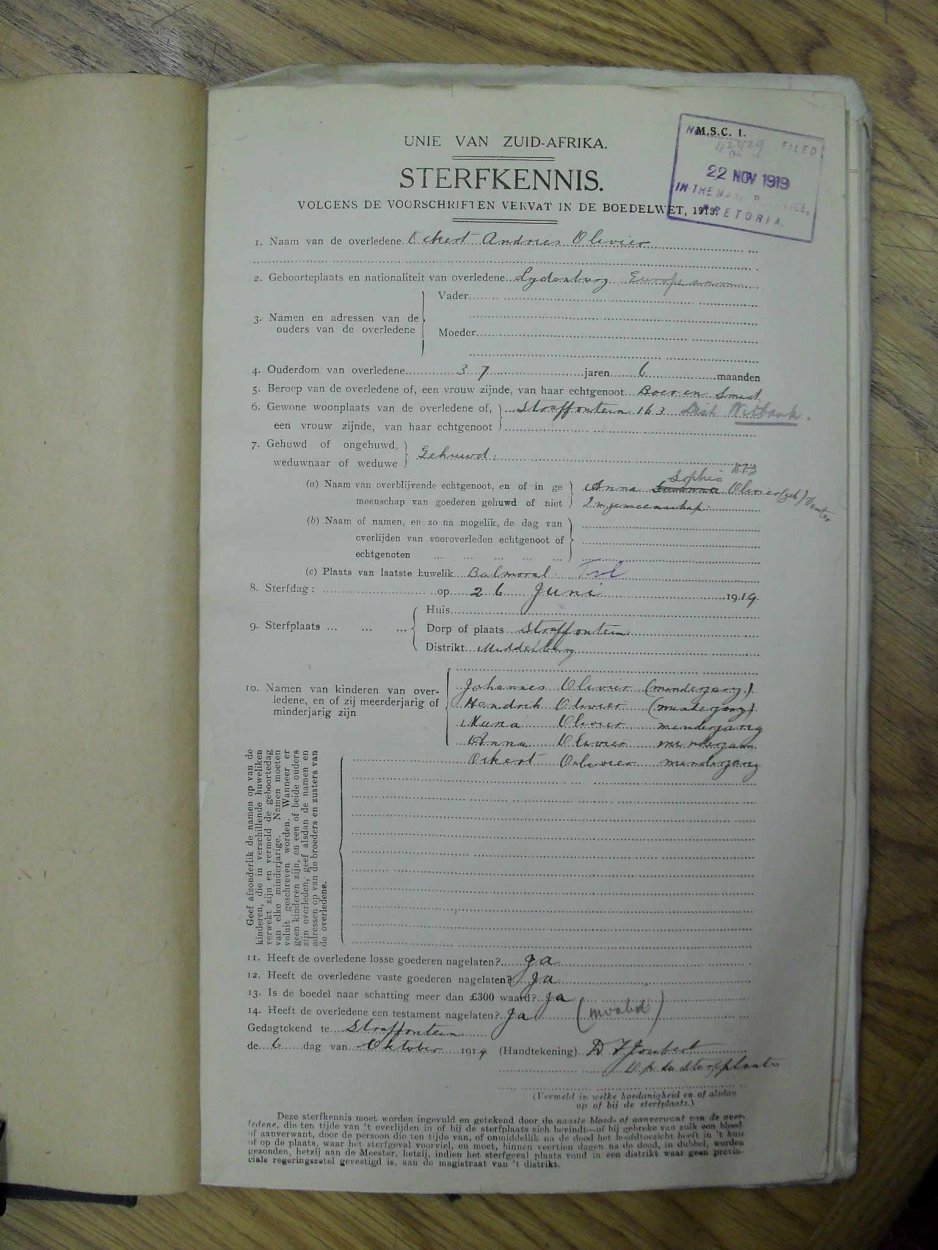 M.S.C. 1.
FILED
22 NOV 1919
IN THE
PRETORIA
UNIE VAN ZUID-AFRIKA.
STERFKENNIS.
VOLGENS DE VOORSCHRIFTEN VERVAT IN DE BOEDELWET, 1913.
1. Naam van de overledene. Ockert Andries Olivier
2. Geboorteplaats en nationaliteit van overledene. Lydenburg
3. Namen en adressen van de ouders van de overledene
Vader
Moeder
4. Ouderdom van overledene 37 jaren 6 maanden
5. Beroep van de overledene of, een vrouw zijnde, van haar echtgenoot Boer en Smid
6. Gewone woonplaats van de overledene of, een vrouw zijnde, van haar echtgenoot
Straffontein 163 Dist Witbank.
7. Gehuwd of ongehuwd, weduwnaar of weduwe
Gehuwd.
(a) Naam van overblijvende echtgenoot, en of in ge meenschap van goederen gehuwd of niet
Anna Sophia Olivier (geb) Venter
In gemeenschap
(b) Naam of namen, en zo na mogelik, de dag van overlijden van vooroverleden echtgenoot of echtgenoten ... ... ... ...
(c) Plaats van laatste huwelik Balmoral Tvl
8. Sterfdag: op 26 Juni 1919
9. Sterfplaats ... ... ...
Huis
Dorp of plaats Straffontein
Distrikt Middelburg
10. Namen van kinderen van over-
ledene, en of zij meerderjarig of
minderjarig zijn
Johannes Olivier (minderjarig)
Hendrik Olivier (minderjarig)
Maria Olivier minderjarig
Anna Olivier minderjarig
Ockert Olivier minderjarig
Geef afzonderlik de namen op van de
kinderen, die in verschillende huweliken
verwekt zijn en vermeld de geboortedag
van elke minderjarige. Namen moeten
voluit geschreven worden. Wanneer er
geen kinderen zijn, en een of beide ouders
zijn overleden, geef alsdan de namen en
adressen op van de broeders en zusters van
de overledene.
11. Heeft de overledene losse goederen nagelaten? Ja
12. Heeft de overledene vaste goederen nagelaten? Ja
13. Is de boedel naar schatting meer dan £300 waard? Ja
14. Heeft de overledene een testament nagelaten? Ja (invalid)
Gedagtekend te Straffontein
de 6 dag van Oktober 1919 (Handtekening) D F Joubert
op de sterfplaats
(Vermeld in welke hoedanigheid en of alsdan
op of bij de sterfplaats.)
Deze sterfkennis moet worden ingevuld en getekend door de naaste bloed- of aanverwant van de over-
ledene, die ten tijde van 't overlijden in of bij de sterfplaats zich bevindt—of bij gebreke van zulk een bloed-
of aanverwant, door de persoon die ten tijde van, of onmiddelik na de dood het hoofdtoezicht heeft in 't huis
of op de plaats, waar het sterfgeval voorviel, en moet, binnen veertien dagen na de dood, in dubbel, worden
gezonden, hetzij aan de Meester, hetzij, indien het sterfgeval plaats vond in een distrikt waar geen provin-
ciale regeringszetel gevestigd is, aan de magistraat van 't distrikt.